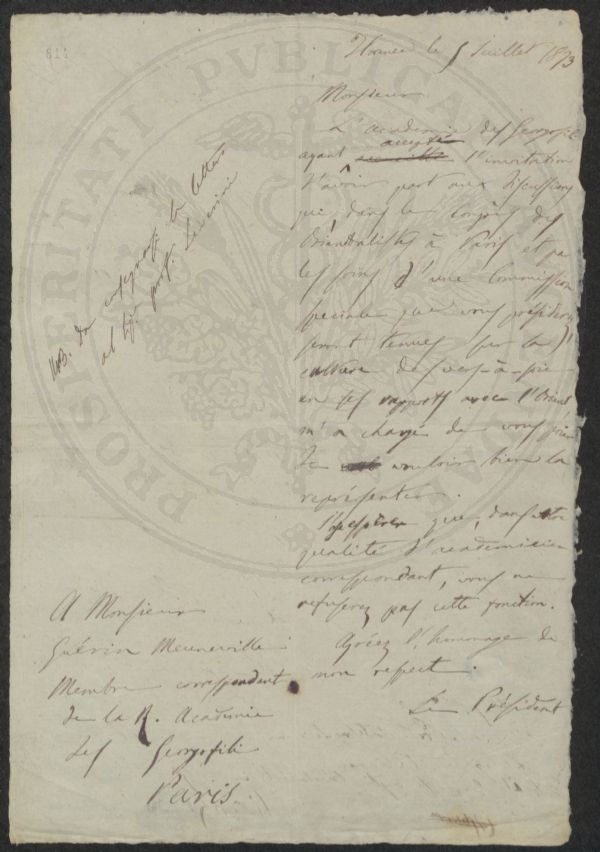 Florence le 5 Juillet 1873
Monsieur
L'academie des Georgofili
ayant accepté l'invitation
d'avoir part aux discussions
qui, dans le Congrès des
Orientalistes à Paris et par
les soins d'une Commission
speciale que vous présidez,
seront tenues sur la
culture des vers-à-soie
en ses rapports avec l'Orient,
m'a chargé de vous prier
de vouloir bien la
représenter.
J'espère que, dans votre
qualité d'academicien
correspondant, vous ne
refuserez pas cette fonction.
Agréez l'hommage de
mon respect.
Le Président
A Monsieur
Guérin Meuneville
Membre correspondent
de la R. Academie
des Georgofili
Paris.
NB. Da consegnarsi la lettera
al Sig. prof.
PROSPERITATI PVBLICAE